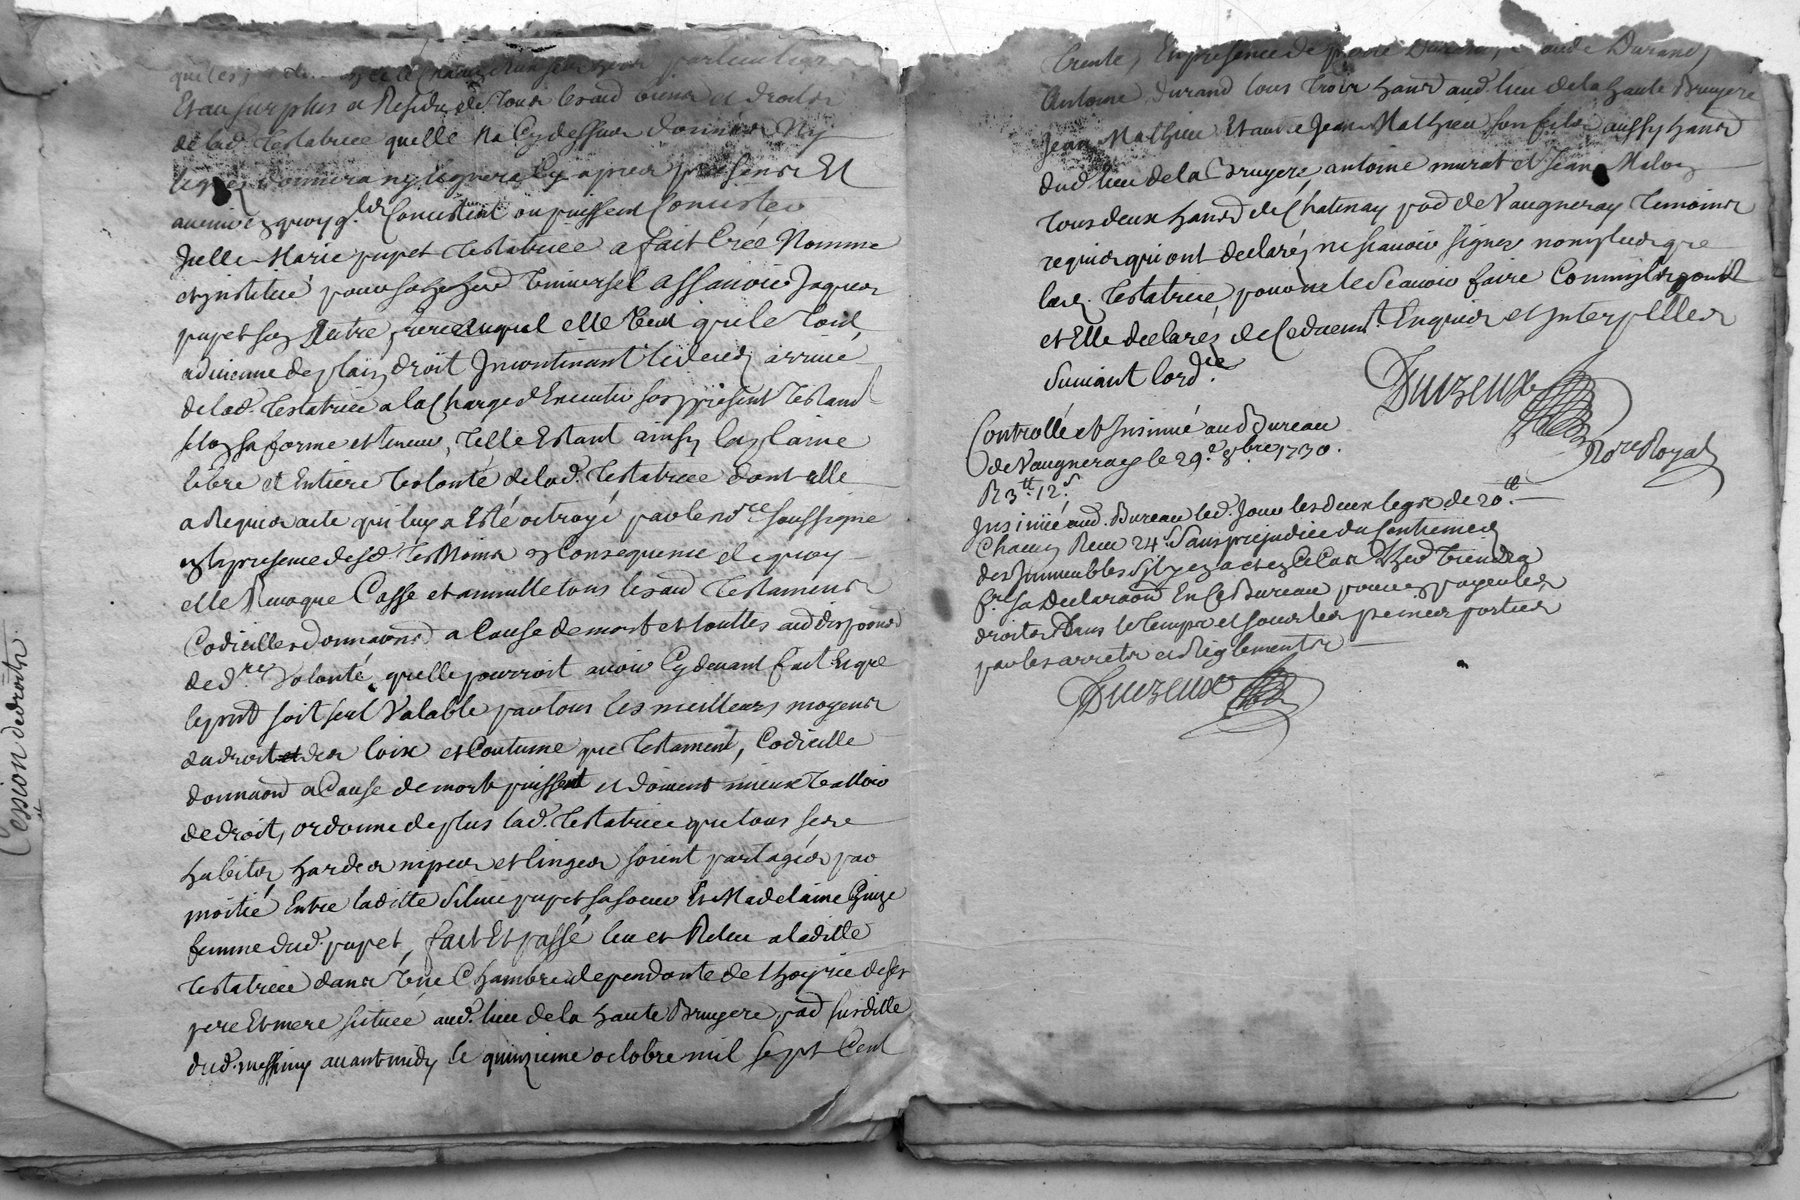 particulier
Et au surplus et Residu de tous lesd. biens et droits
de lad. testatrice quelle na Cydessus donnes Ny
legues donnera ny leguera Cy apres presens Et
avenir quoyq. Consistent ou puissent Consister
Jcelle Marie pupet testatrice a fait Créé Nomme
et jnstitué pour son herer universel assavoir Jaques
pupet son autre frere auquel elle veut quele tout
advienne de plain droit Jncontinant le deced arrivé
de lad. testatrice a la Charge d'Executer son present testant
selon sa forme et teneur, telle Estant ainsy la plaine
libre et Entiere volonté de lad. testatrice dont elle
a Requis acte qui luy a Esté octroyé par le nore soussigne
en la presence desd. tesmoins en Consequence de quoy
elle Revoque Casse et annulle tous lesaud testamens
Codicilles donnaons a Cause de mort et touttes aud dispoons
de dres volonté quelle pourroit avoir Cy devant fait Et que
le pnt soit seul valable par tous les meilleurs moyens
du droit des loix et Coutume que testament, Codicille
donnaon a Cause de mort puissent et doivent mieux valloir
de droit, ordonne de plus lad. testatrice que tous ses
habits hardes nipes et linges soient partagés par
moitié Entre laditte pupet sa soeur Et Madelaine
femme dud. pupet, fait Et passé leu et Releu a laditte
testatrice dans une Chambre dependante de l'hoyrie de ses
pere Et mere situeé aud. lieu de la haute Bruyere pad susditte
dud. messimy avant midy le quinzieme octobre mil sept Cent
Cession de droits
trente, En presence de pierre Durand,
Antoine durand tous trois habns aud. lieu de la haute Bruyere
Jean Mathieu Et autre Jean Mathieu son fils aussy habns
dud. lieu de la Bruyere, antoine murat et Jean
tous deux habns de Chatenay pad de Vaugneray temoins
requis qui ont declaré ne scavoir signer non plus que
lad. testatrice pour ne le Scavoir faire
et Elle declarés de Ce duemt. Enquis et jnterpellés
Suivant lordce.
Duizeux
Nore Royal
Controllé et Jnsinué au Bureau
de Vaugneray le 29.e 8bre 1730.
R 3tt 12s
Jnsinué aud. Bureau led. Jour les deux legs de 20tt
Chacun Reçu 24s Sans prejudice du Centieme den
des Jmmeubles Sil y en a
fe. sa Declaraon En Ce Bureau pour en payer les
droits Dans le temps et sous les peines portées
par les arrets et Reglements
Duizeux